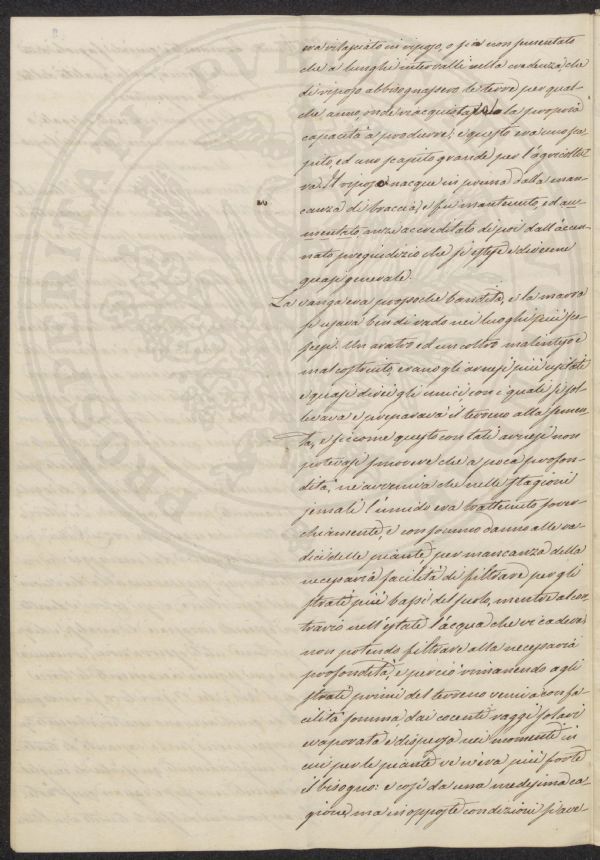 era rilasciato in riposo, o sia non sementato
che a lunghi intervalli nella credenza, che
di riposo abbisognassero le terre per qual-
che anno, onde riacquistassero la propria
capacità a produrre; e questo era uno sca-
pito, ed uno scapito grande per l'agricoltu-
ra. Il riposo nacque in prima dalla man-
canza di braccia, e fu mantenuto, ed au-
mentato, anzi accreditato di poi dall'accen-
nato pregiudizio che si estese e divenne
quasi generale.
La vanga era pressoché bandita, e la marra
si usava ben di rado nei luoghi più sco-
scesi. Un aratro ed un coltro mal inteso e
mal costruito, erano gli arnesi più usitati
e quasi direi gli unici con i quali si sol-
levava e preparava il terreno alla semen-
ta, e siccome questo con tali arnesi non
potevasi smuovere che a poca profon-
dità, ne avveniva che nelle stagioni
jemali l'umido era trattenuto sover-
chiamente, e con sommo danno alle ra-
dici delle piante per mancanza della
necessaria facilità di filtrare per gli
strati più bassi del suolo, mentre al con-
trario nell'estate l'acqua che vi cadeva,
non potendo filtrare alla necessaria
profondità, e perciò rimanendo agli
strati primi del terreno veniva con fa-
cilità somma dai cocenti raggi solari
evaporata e dispersa nei momenti in
cui per le piante ve n'era più forte
il bisogno: e così da una medesima ca-
gione, ma in opposte condizioni si ave-